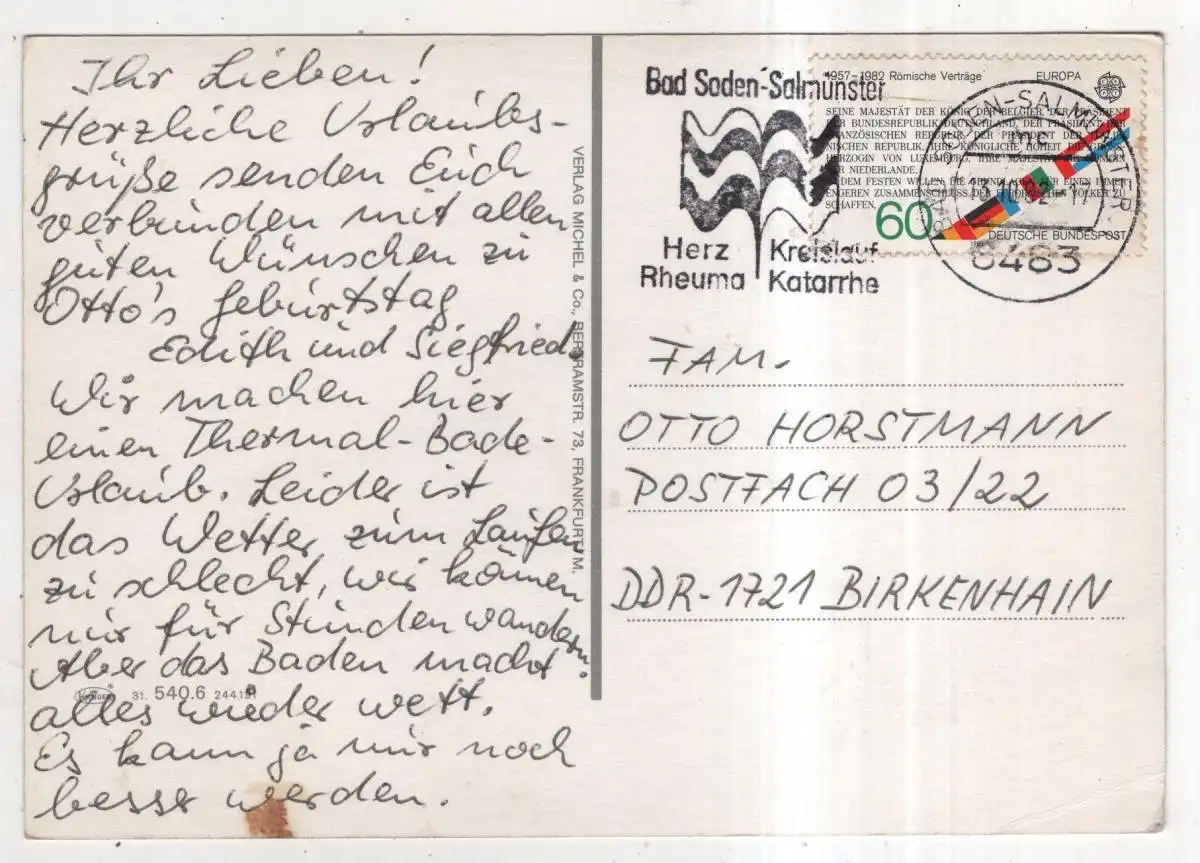 Ihr Lieben!
Herzliche Urlaubs-
grüße senden Euch
verbunden mit allen
guten Wünschen zu
Otto's Geburtstag
Edith und Siegfried.
Wir machen hier
einen Thermal-Bade-
Urlaub. Leider ist
das Wetter zum Laufen
zu schlecht, wir können
nur für Stunden wandern.
Aber das Baden macht
alles wieder wett.
Es kann ja nur noch
besser werden.
31. 540.6 244.191
VERLAG MICHEL & Co., BERTRAMSTR. 73, FRANKFURT/M.
Bad Soden-Salmünster
Herz Kreislauf
Rheuma Katarrhe
1957-1982 Römische Verträge EUROPA
SEINE MAJESTÄT DER KÖNIG DER BELGIER, DER PRÄSIDENT
DER BUNDESREPUBLIK DEUTSCHLAND, DER PRÄSIDENT DER
FRANZÖSISCHEN REPUBLIK, DER PRÄSIDENT DER ITALIE-
NISCHEN REPUBLIK, IHRE KÖNIGLICHE HOHEIT DIE GROSS-
HERZOGIN VON LUXEMBURG, IHRE MAJESTÄT DIE KÖNIGIN
DER NIEDERLANDE,
IN DEM FESTEN WILLEN, DIE GRUNDLAGEN FÜR EINEN IMMER
ENGEREN ZUSAMMENSCHLUSS DER EUROPÄISCHEN VÖLKER ZU
SCHAFFEN,
60
DEUTSCHE BUNDESPOST
6483
FAM.
OTTO HORSTMANN
POSTFACH 03/22
DDR-1721 BIRKENHAIN